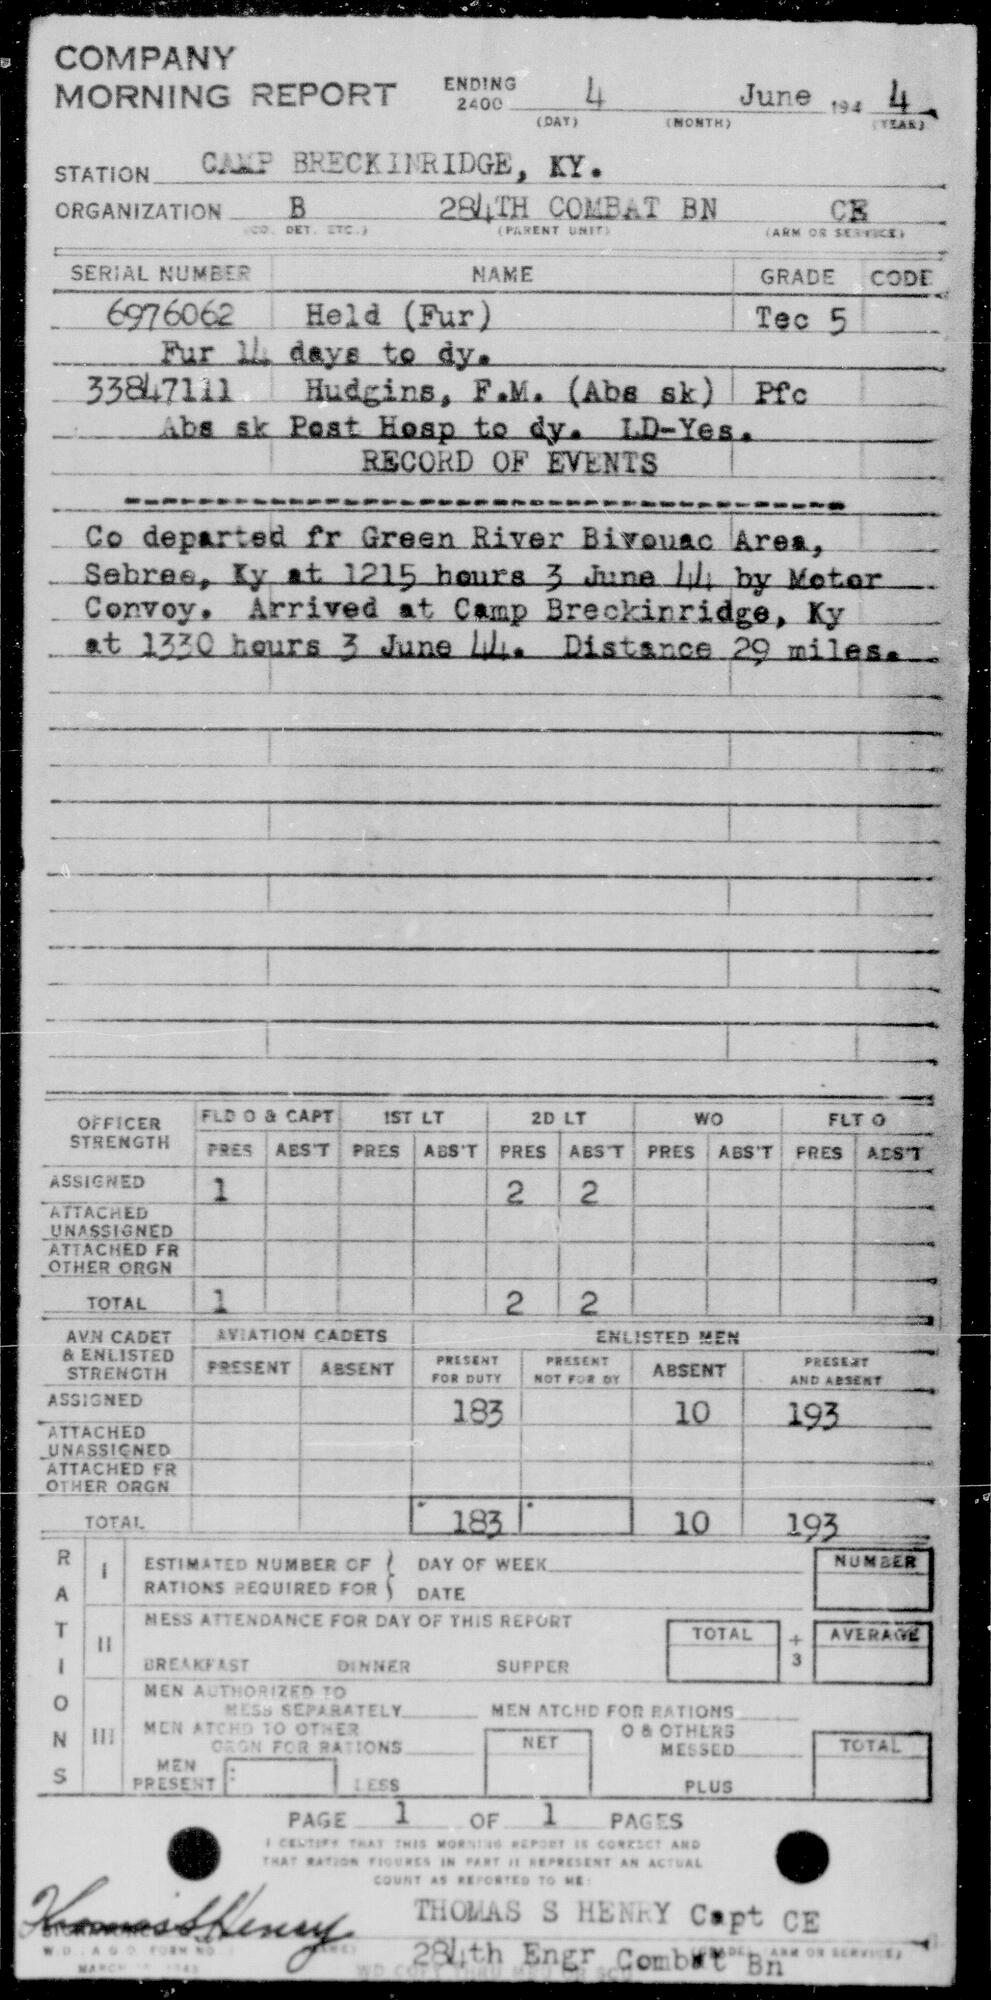 COMPANY
MORNING REPORT ENDING 2400 4 June 194 4
(DAY) (MONTH) (YEAR)
STATION CAMP BRECKINRIDGE, KY.
ORGANIZATION B 284TH COMBAT BN CE
(CO. DET. ETC.) (PARENT UNIT) (ARM OR SERVICE)
SERIAL NUMBER NAME GRADE CODE
6976062 Held (Fur) Tec 5
Fur 14 days to dy.
33847111 Hudgins, F.M. (Abs sk) Pfc
Abs sk Post Hosp to dy. LD-Yes.
RECORD OF EVENTS
Co departed fr Green River Bivouac Area,
Sebree, Ky at 1215 hours 3 June 44 by Motor
Convoy. Arrived at Camp Breckinridge, Ky
at 1330 hours 3 June 44. Distance 29 miles.
OFFICER STRENGTH FLD O & CAPT 1ST LT 2D LT WO FLT O
PRES ABS'T PRES ABS'T PRES ABS'T PRES ABS'T PRES ABS'T
ASSIGNED 1 2 2
ATTACHED UNASSIGNED
ATTACHED FR OTHER ORGN
TOTAL 1 2 2
AVN CADET & ENLISTED STRENGTH AVIATION CADETS ENLISTED MEN
PRESENT ABSENT PRESENT FOR DUTY PRESENT NOT FOR DY ABSENT PRESENT AND ABSENT
ASSIGNED 183 10 193
ATTACHED UNASSIGNED
ATTACHED FR OTHER ORGN
TOTAL 183 10 193
RATIONS
I ESTIMATED NUMBER OF RATIONS REQUIRED FOR DAY OF WEEK DATE NUMBER
II MESS ATTENDANCE FOR DAY OF THIS REPORT
BREAKFAST DINNER SUPPER TOTAL ÷ 3 AVERAGE
III MEN AUTHORIZED TO MESS SEPARATELY MEN ATCHD FOR RATIONS
MEN ATCHD TO OTHER ORGN FOR RATIONS NET O & OTHERS MESSED TOTAL
MEN PRESENT LESS PLUS
PAGE 1 OF 1 PAGES
I CERTIFY THAT THIS MORNING REPORT IS CORRECT AND
THAT RATION FIGURES IN PART II REPRESENT AN ACTUAL
COUNT AS REPORTED TO ME:
Thomas S Henry THOMAS S HENRY Capt CE
W.D., A.G.O. FORM NO. (GRADE) ARM OR SERVICE)
284th Engr Combat Bn
MARCH 1943